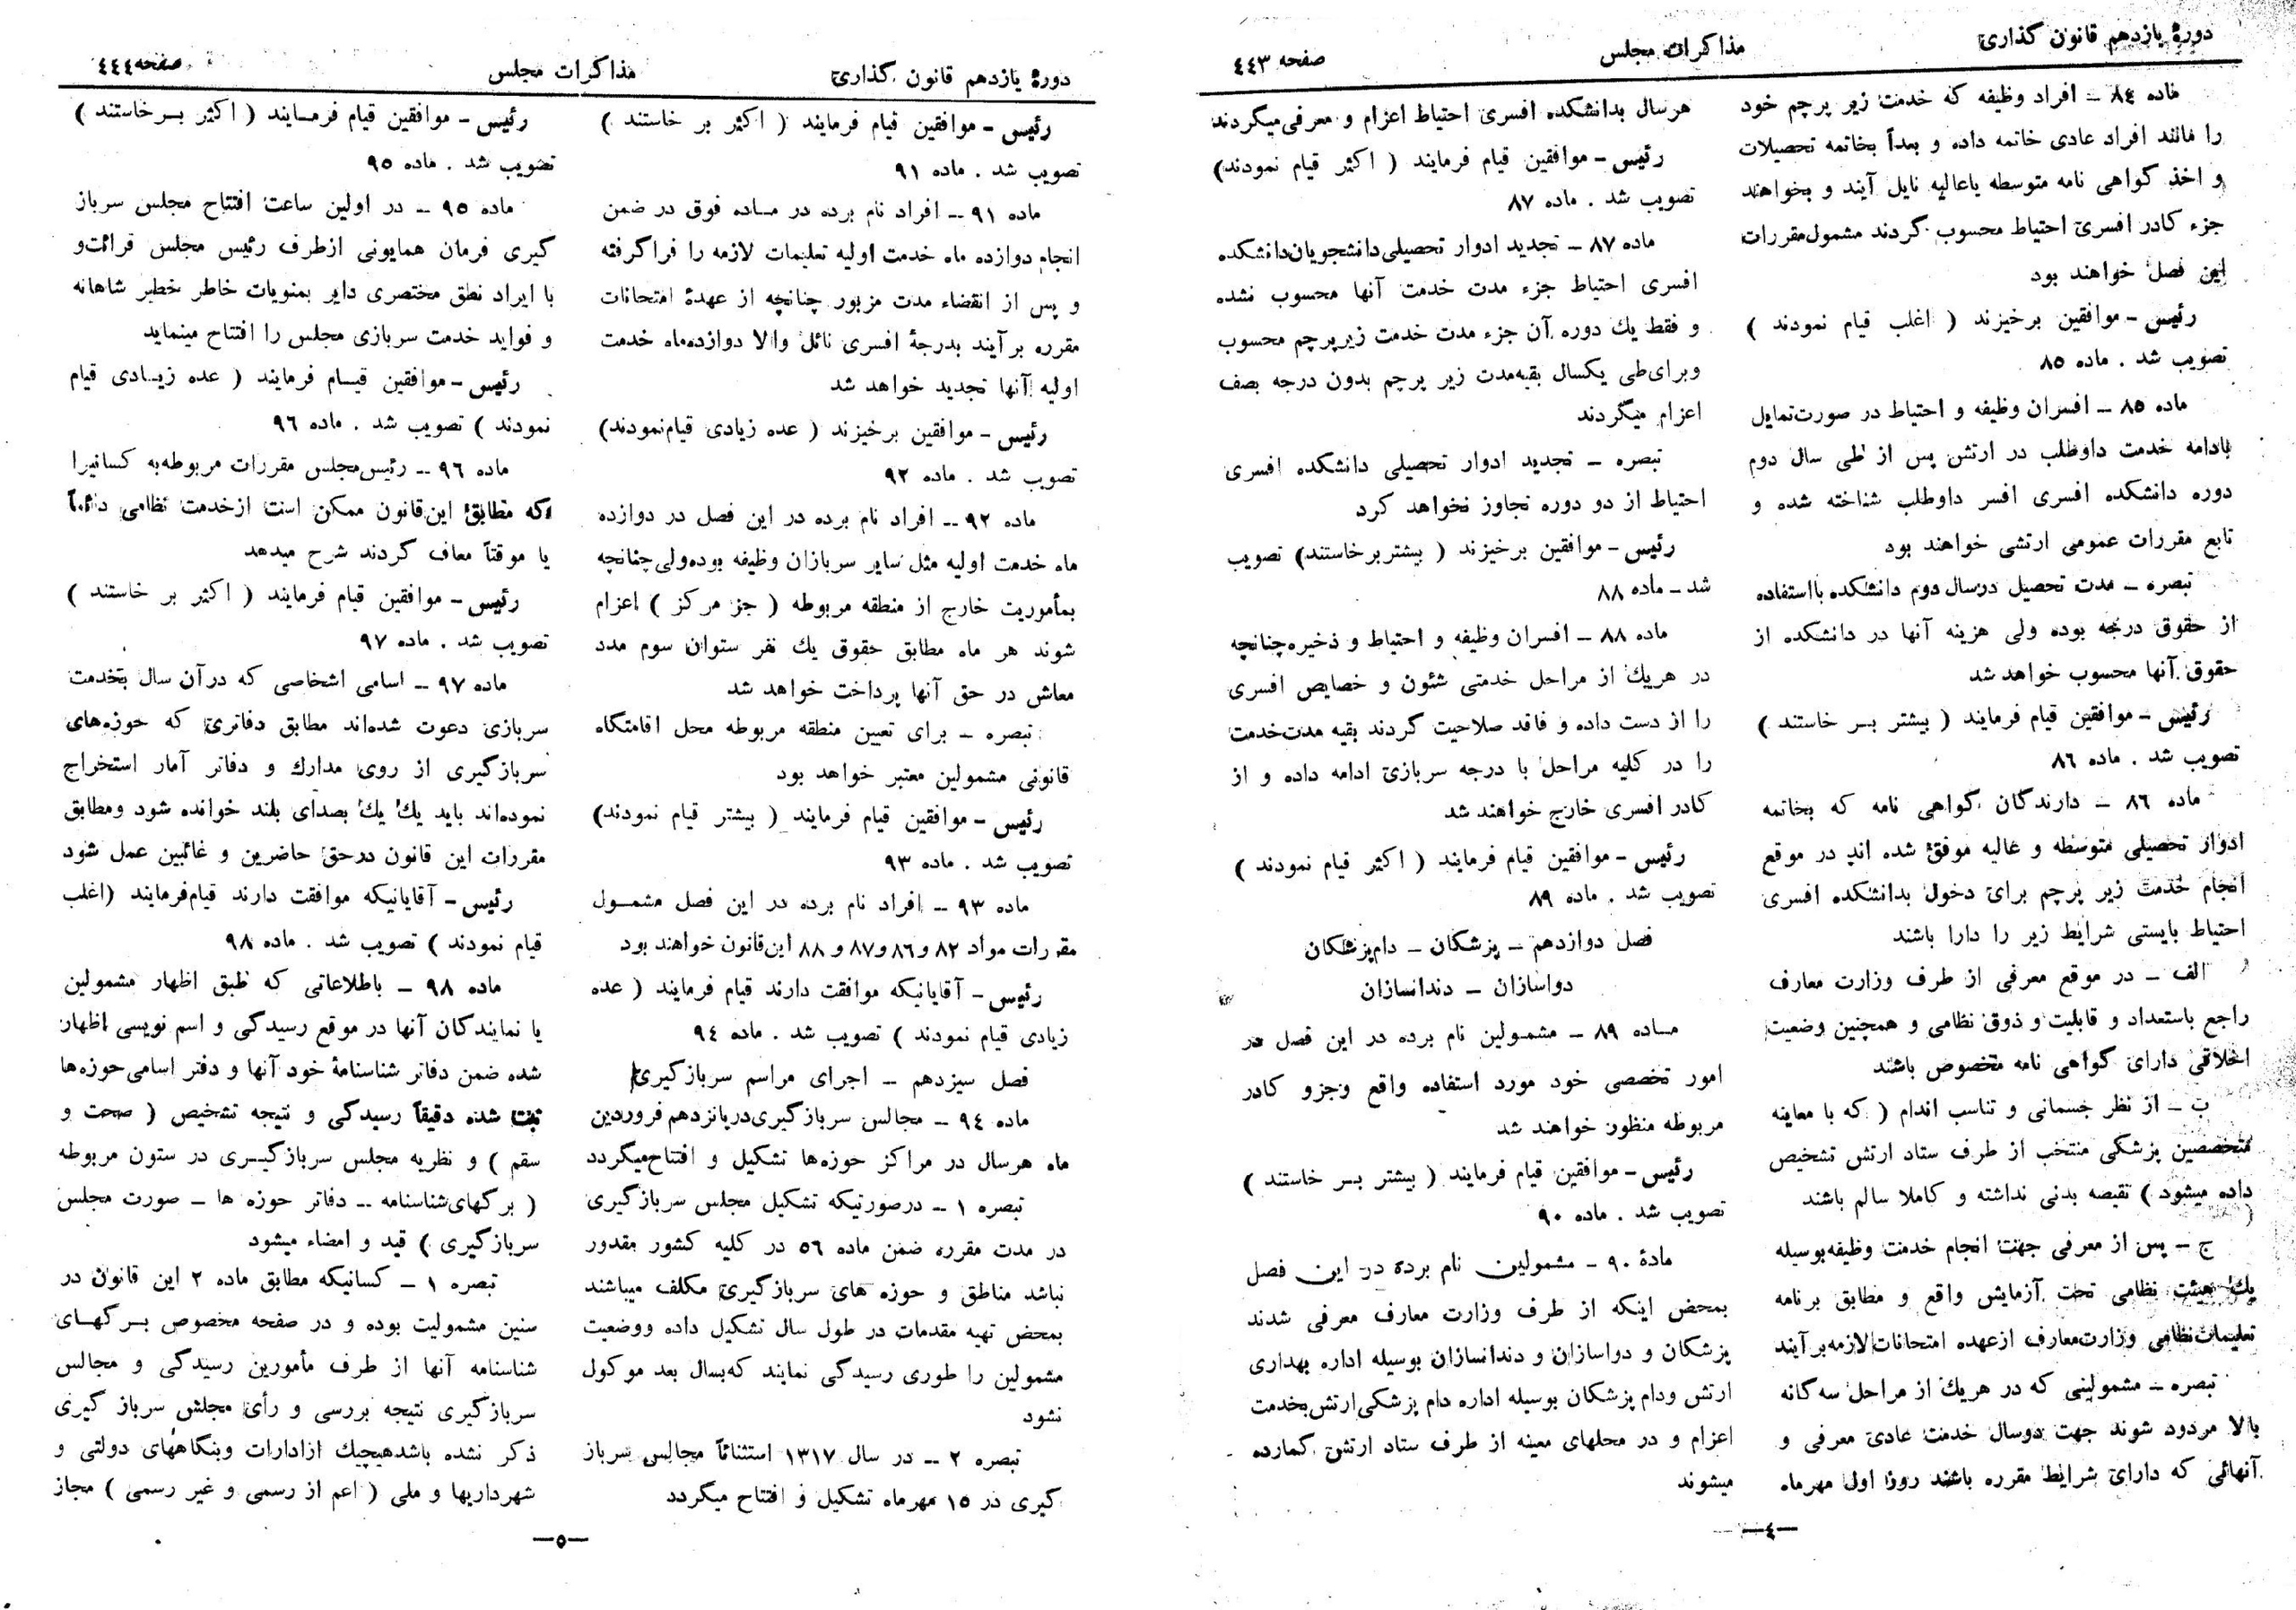 دورهٔ یازدهم قانون گذاری
مذاکرات مجلس
صفحه ٤٤٣
ماده ٨٤ ــ افراد وظیفه که خدمت زیر پرچم خود
را مانند افراد عادی خاتمه داده و بعداً بخاتمه تحصیلات
و اخذ گواهی نامه متوسطه یاعالیه نایل آیند و بخواهند
جزء کادر افسری احتیاط محسوب گردند مشمول مقررات
این فصل خواهند بود
رئیس ــ موافقین برخیزند ( اغلب قیام نمودند )
تصویب شد . ماده ٨٥
ماده ٨٥ ــ افسران وظیفه و احتیاط در صورت تمایل
بادامه خدمت داوطلب در ارتش پس از طی سال دوم
دوره دانشکده افسری افسر داوطلب شناخته شده و
تابع مقررات عمومی ارتشی خواهند بود
تبصره ــ مدت تحصیل درسال دوم دانشکده بااستفاده
از حقوق درجه بوده ولی هزینه آنها در دانشکده از
حقوق آنها محسوب خواهد شد
رئیس ــ موافقین قیام فرمایند ( بیشتر بــر خاستند )
تصویب شد . ماده ٨٦
ماده ٨٦ ــ دارندگان گواهی نامه که بخاتمه
ادوار تحصیلی متوسطه و عالیه موفق شده اند در موقع
انجام خدمت زیر پرچم برای دخول بدانشکده افسری
احتیاط بایستی شرایط زیر را دارا باشند
الف ــ در موقع معرفی از طرف وزارت معارف
راجع باستعداد و قابلیت و ذوق نظامی و همچنین وضعیت
اخلاقی دارای گواهی نامه مخصوص باشند
ب ــ از نظر جسمانی و تناسب اندام ( که با معاینه
متخصصین پزشکی منتخب از طرف ستاد ارتش تشخیص
داده میشود ) نقیصه بدنی نداشته و کاملا سالم باشند
ج ــ پس از معرفی جهت انجام خدمت وظیفه بوسیله
یك هیئت نظامی تحت آزمایش واقع و مطابق برنامه
تعلیمات نظامی وزارت معارف ازعهده امتحانات لازمه برآیند
تبصره ــ مشمولینی که در هریك از مراحل سه گانه
بالا مردود شوند جهت دوسال خدمت عادی معرفی و
آنهائی که دارای شرایط مقرره باشند روز اول مهرماه
هرسال بدانشکده افسری احتیاط اعزام و معرفی میگردند
رئیس ــ موافقین قیام فرمایند ( اکثر قیام نمودند)
تصویب شد . ماده ٨٧
ماده ٨٧ ــ تجدید ادوار تحصیلی دانشجویان دانشکده
افسری احتیاط جزء مدت خدمت آنها محسوب نشده
و فقط یك دوره آن جزء مدت خدمت زیر پرچم محسوب
وبرای طی یکسال بقیه مدت زیر پرچم بدون درجه بصف
اعزام میگردند
تبصره ــ تجدید ادوار تحصیلی دانشکده افسری
احتیاط از دو دوره تجاوز نخواهد کرد
رئیس ــ موافقین برخیزند ( بیشتر برخاستند) تصویب
شد ــ ماده ٨٨
ماده ٨٨ ــ افسران وظیفه و احتیاط و ذخیره چنانچه
در هریك از مراحل خدمتی شئون و خصایص افسری
را از دست داده و فاقد صلاحیت گردند بقیه مدت خدمت
را در کلیه مراحل با درجه سربازی ادامه داده و از
کادر افسری خارج خواهند شد
رئیس ــ موافقین قیام فرمایند ( اکثر قیام نمودند )
تصویب شد . ماده ٨٩
فصل دوازدهم ــ پزشکان ــ دام پزشکان
دواسازان ــ دندانسازان
مــاده ٨٩ ــ مشمولین نام برده در این فصل در
امور تخصصی خود مورد استفاده واقع وجزو کادر
مربوطه منظور خواهند شد
رئیس ــ موافقین قیام فرمایند ( بیشتر بــر خاستند )
تصویب شد . ماده ٩٠
مادهٔ ٩٠ ــ مشمولین نام برده در این فصل
بمحض اینکه از طرف وزارت معارف معرفی شدند
پزشکان و دواسازان و دندانسازان بوسیله اداره بهداری
ارتش ودام پزشکان بوسیله اداره دام پزشکی ارتش بخدمت
اعزام و در محلهای معینه از طرف ستاد ارتش گمارده
میشوند
ــ٤ــ
دورهٔ یازدهم قانون گذاری
مذاکرات مجلس
صفحه ٤٤٤
رئیس ــ موافقین قیام فرمایند ( اکثر بر خاستند )
تصویب شد . ماده ٩١
ماده ٩١ ــ افراد نام برده در مــاده فوق در ضمن
انجام دوازده ماه خدمت اولیه تعلیمات لازمه را فراگرفته
و پس از انقضاء مدت مزبور چنانچه از عهدهٔ امتحانات
مقرره برآیند بدرجهٔ افسری نائل والا دوازده ماه خدمت
اولیه آنها تجدید خواهد شد
رئیس ــ موافقین برخیزند ( عده زیادی قیام نمودند)
تصویب شد . ماده ٩٢
ماده ٩٢ ــ افراد نام برده در این فصل در دوازده
ماه خدمت اولیه مثل سایر سربازان وظیفه بوده ولی چنانچه
بمأموریت خارج از منطقه مربوطه ( جز مرکز ) اعزام
شوند هر ماه مطابق حقوق یك نفر ستوان سوم مدد
معاش در حق آنها پرداخت خواهد شد
تبصره ــ برای تعیین منطقه مربوطه محل اقامتگاه
قانونی مشمولین معتبر خواهد بود
رئیس ــ موافقین قیام فرمایند ( بیشتر قیام نمودند)
تصویب شد . ماده ٩٣
ماده ٩٣ ــ افراد نام برده در این فصل مشمــول
مقررات مواد ٨٢ و٨٦ و٨٧ و ٨٨ این قانون خواهند بود
رئیس ــ آقایانیکه موافقت دارند قیام فرمایند ( عده
زیادی قیام نمودند ) تصویب شد . ماده ٩٤
فصل سیزدهم ــ اجرای مراسم سربازگیری
ماده ٩٤ ــ مجالس سربازگیری در پانزدهم فروردین
ماه هرسال در مراکز حوزه ها تشکیل و افتتاح میگردد
تبصره ١ ــ درصورتیکه تشکیل مجلس سربازگیری
در مدت مقرره ضمن ماده ٥٦ در کلیه کشور مقدور
نباشد مناطق و حوزه های سربازگیری مکلف میباشند
بمحض تهیه مقدمات در طول سال تشکیل داده ووضعیت
مشمولین را طوری رسیدگی نمایند که بسال بعد موکول
نشود
تبصره ٢ ــ در سال ١٣١٧ استثنائاً مجالس سرباز
گیری در ١٥ مهرماه تشکیل و افتتاح میگردد
رئیس ــ موافقین قیام فرمــایند ( اکثر بــرخاستند )
تصویب شد . ماده ٩٥
ماده ٩٥ ــ در اولین ساعت افتتاح مجلس سرباز
گیری فرمان همایونی ازطرف رئیس مجلس قرائت و
با ایراد نطق مختصری دایر بمنویات خاطر خطیر شاهانه
و فواید خدمت سربازی مجلس را افتتاح مینماید
رئیس ــ موافقین قیــام فرمایند ( عده زیــادی قیام
نمودند ) تصویب شد . ماده ٩٦
ماده ٩٦ ــ رئیس مجلس مقررات مربوطه به کسانیرا
که مطابق این قانون ممکن است ازخدمت نظامی دائماً
یا موقتاً معاف گردند شرح میدهد
رئیس ــ موافقین قیام فرمایند ( اکثر بر خاستند )
تصویب شد . ماده ٩٧
ماده ٩٧ ــ اسامی اشخاصی که درآن سال بخدمت
سربازی دعوت شده اند مطابق دفاتری که حوزه های
سربازگیری از روی مدارك و دفاتر آمار استخراج
نموده اند باید یك یك بصدای بلند خوانده شود ومطابق
مقررات این قانون درحق حاضرین و غائبین عمل شود
رئیس ــ آقایانیکه موافقت دارند قیام فرمایند (اغلب
قیام نمودند ) تصویب شد . ماده ٩٨
ماده ٩٨ ــ باطلاعاتی که طبق اظهار مشمولین
یا نمایندگان آنها در موقع رسیدگی و اسم نویسی اظهار
شده ضمن دفاتر شناسنامهٔ خود آنها و دفتر اسامی حوزه ها
ثبت شده دقیقاً رسیدگی و نتیجه تشخیص ( صحت و
سقم ) و نظریه مجلس سربازگیــری در ستون مربوطه
( برگهای شناسنامه ــ دفاتر حوزه ها ــ صورت مجلس
سربازگیری ) قید و امضاء میشود
تبصره ١ ــ کسانیکه مطابق ماده ٢ این قانون در
سنین مشمولیت بوده و در صفحه مخصوص بــرگهــای
شناسنامه آنها از طرف مأمورین رسیدگی و مجالس
سربازگیری نتیجه بررسی و رأی مجلس سرباز گیری
ذکر نشده باشد هیچیك ازادارات وبنگاههای دولتی و
شهرداریها و ملی ( اعم از رسمی و غیر رسمی ) مجاز
ــ٥ــ